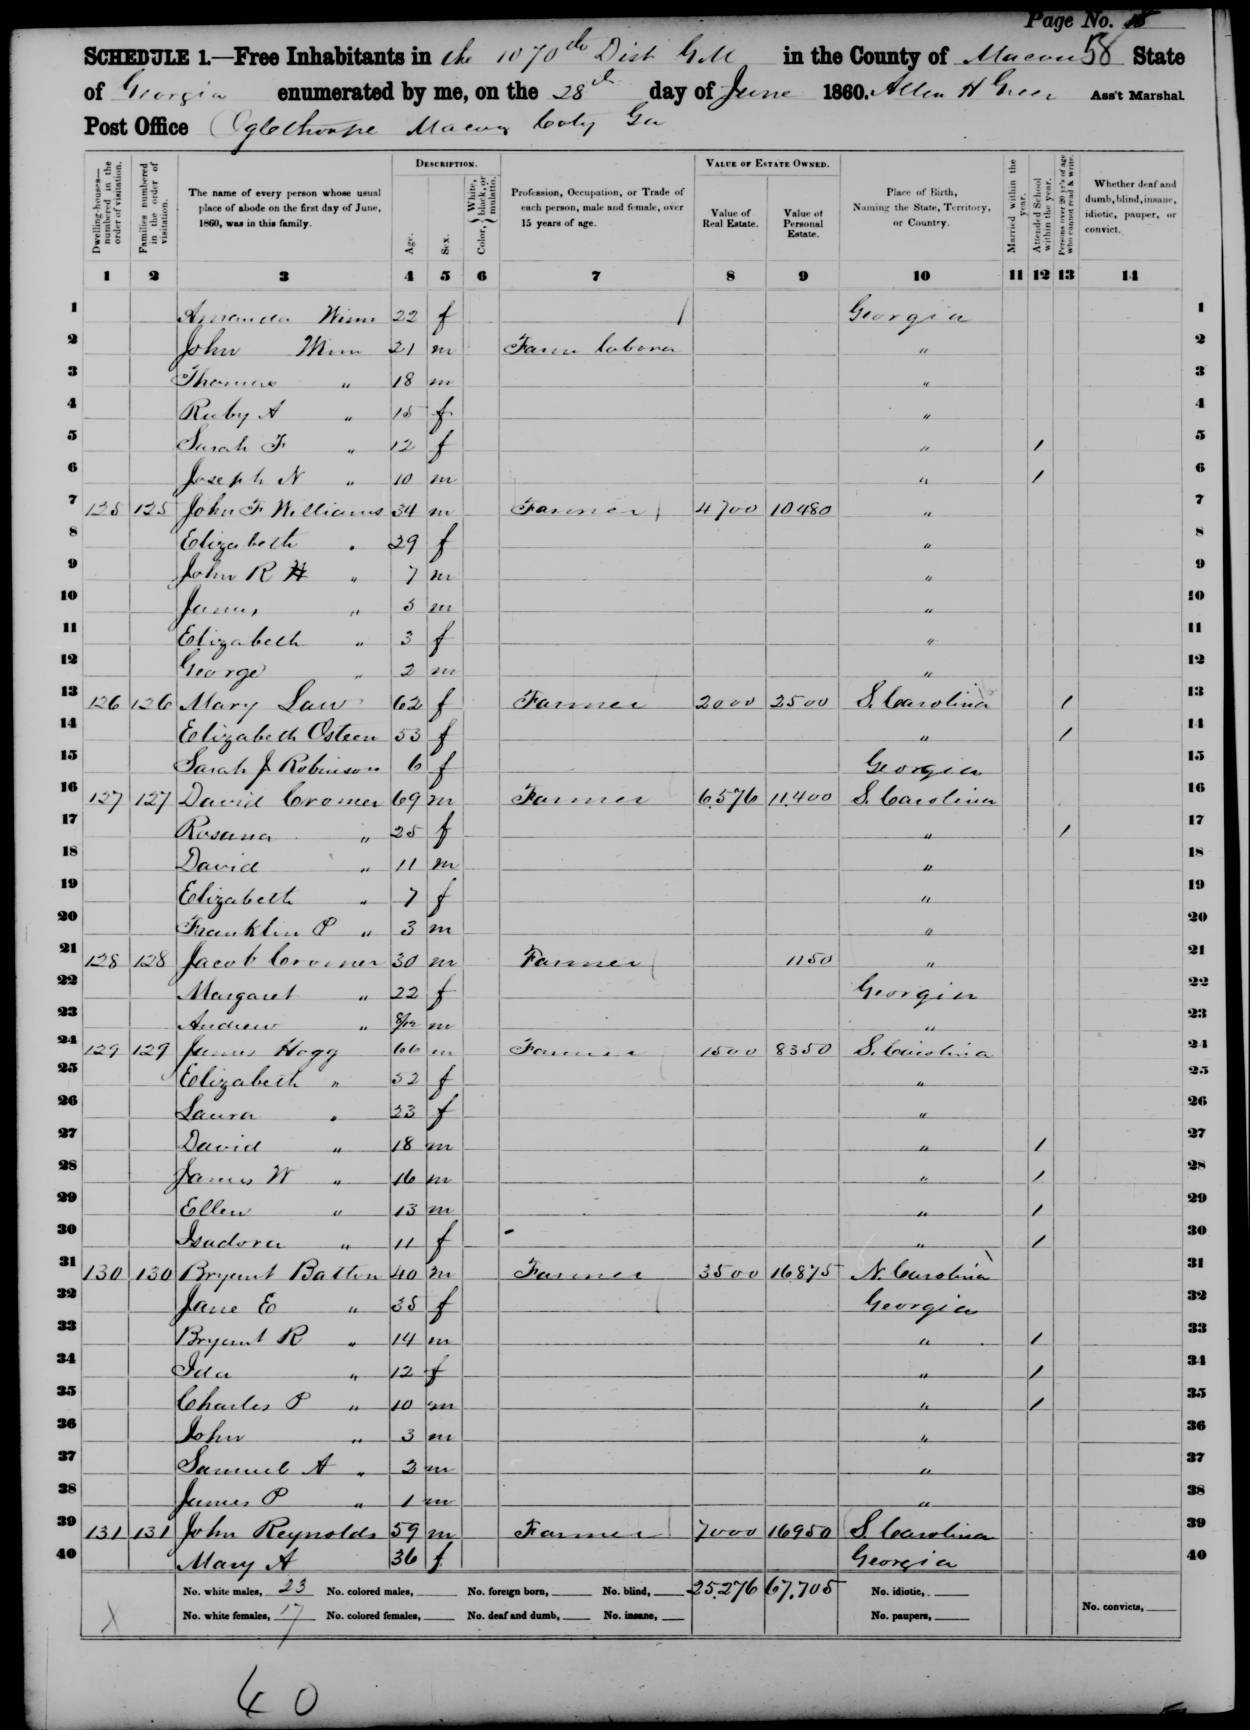 Page No.
SCHEDULE 1.—Free Inhabitants in the 1070th Dist G.M in the County of Macon 58 State
of Georgia enumerated by me, on the 28th day of June 1860. Allen H Greer Ass't Marshal.
Post Office Oglethorpe Macon Coty Ga
Dwelling-houses—numbered in the order of visitation.
Families numbered in the order of visitation.
The name of every person whose usual place of abode on the first day of June, 1860, was in this family.
DESCRIPTION.
Age.
Sex.
Color, { White, black, or mulatto.
Profession, Occupation, or Trade of each person, male and female, over 15 years of age.
VALUE OF ESTATE OWNED.
Value of Real Estate.
Value of Personal Estate.
Place of Birth, Naming the State, Territory, or Country.
Married within the year.
Attended School within the year.
Persons over 20 y'rs of age who cannot read & write.
Whether deaf and dumb, blind, insane, idiotic, pauper, or convict.
1 2 3 4 5 6 7 8 9 10 11 12 13 14
1 Amanda Winn 22 f Georgia 1
2 John Winn 21 m Farm laborer " 2
3 Thomas " 18 m " 3
4 Ruby A " 15 f " 4
5 Sarah F " 12 f " / 5
6 Joseph N " 10 m " / 6
7 125 125 John F Williams 34 m Farmer 4700 10480 " 7
8 Elizabeth " 29 f " 8
9 John R H " 7 m " 9
10 James " 5 m " 10
11 Elizabeth " 3 f " 11
12 George " 2 m " 12
13 126 126 Mary Law 62 f Farmer 2000 2500 S. Carolina / 13
14 Elizabeth Osteen 53 f " / 14
15 Sarah J Robinson 6 f Georgia 15
16 127 127 David Cromer 69 m Farmer 6,576 11,400 S. Carolina 16
17 Rosanna " 25 f " / 17
18 David " 11 m " 18
19 Elizabeth " 7 f " 19
20 Franklin P " 3 m " 20
21 128 128 Jacob Cromer 30 m Farmer 1150 " 21
22 Margaret " 22 f Georgia 22
23 Andrew " 8/12 m " 23
24 129 129 James Hogg 66 m Farmer 1500 8350 S. Carolina 24
25 Elizabeth " 52 f " 25
26 Laura " 23 f " 26
27 David " 18 m " / 27
28 James W " 16 m " / 28
29 Ellen " 13 m " / 29
30 Isadora " 11 f " / 30
31 130 130 Bryant Batton 40 m Farmer 3500 16875 N. Carolina 31
32 Jane E " 35 f Georgia 32
33 Bryant R " 14 m " / 33
34 Ida " 12 f " / 34
35 Charles P " 10 m " / 35
36 John " 3 m " 36
37 Samuel A " 2 m " 37
38 James P " 1 m " 38
39 131 131 John Reynolds 59 m Farmer 7000 16950 S. Carolina 39
40 Mary A 36 f Georgia 40
No. white males, 23 No. colored males, No. foreign born, No. blind, 25,276 67,705 No. idiotic,
No. white females, 17 No. colored females, No. deaf and dumb, No. insane, No. paupers, No. convicts,
X
40